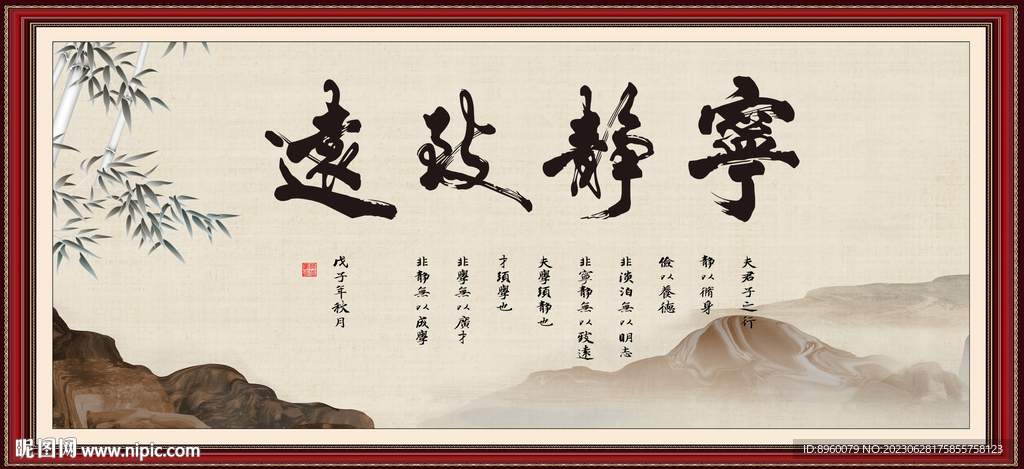 寧靜致遠
夫君子之行
靜以脩身
儉以養德
非淡泊無以明志
非寧靜無以致遠
夫學須靜也
才須學也
非學無以廣才
非靜無以成學
戊子年秋月
昵图网 www.nipic.com
ID:8960079 NO:20230628175855758123